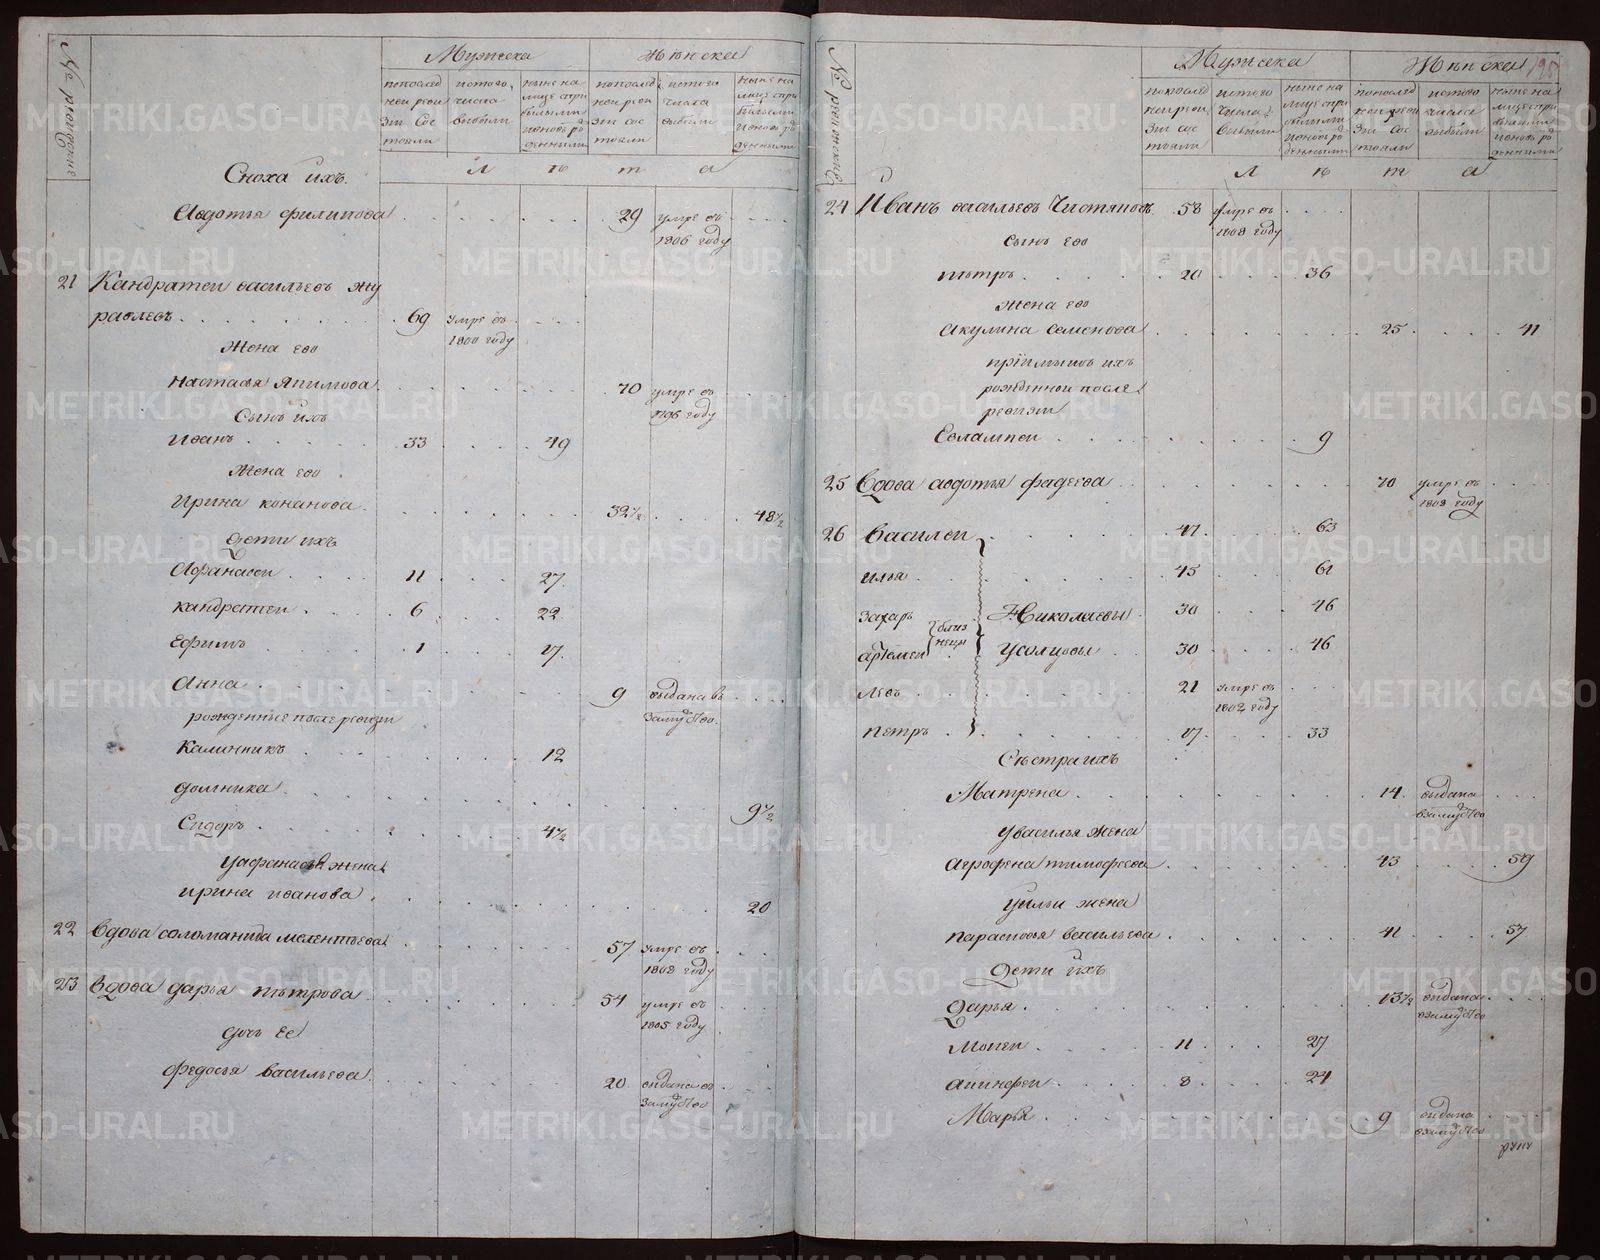 № ревижские
Мужеска
Женска
попослед
ней реви
зіи сос
тояли
исього
числа
выбыли
ныне на
лице спри
былыми
иновь ро
денными
попослед
ней реви
зіи сос
тояли
истого
числа
выбыли
ныне на
лице спри
былыми
иновь ро
денными
Л ѣ т а
Сноха ихъ.
Авдотья филипова 29 умре въ
1806 году
21 Кандратеи васильевъ жу
равлевъ 69 умре въ
1800 году
Жена ево
настасья Якимова 70 умре въ
1796 году
Сынъ ихъ
иванъ 33 49
Жена ево
ирина конанова 32½ 48½
дети ихъ
Афанасеи 11 27
кандратеи 6 22
Ефимъ 1 17
Анна 9 выдана въ
замужство
рожденные после ревизи
Калинникъ 12
домника 9½
Сидоръ 4½
уафанасья жена
ирина иванова 20
22 вдова соломанида мелентьева 57 умре въ
1808 году
23 вдова дарья петрова 54 умре въ
1805 году
дочь Ее
федосья васильева 20 выдана въ
замужство
№ ревижские
Мужеска
Женска
попослед
ней реви
зіи сос
тояли
истого
числа
выбыли
ныне на
лице спри
былыми
иновь ро
денными
попослед
ней реви
зіи сос
тояли
истого
числа
выбыли
ныне на
лице спри
былыми
иновь ро
денными
Л ѣ т а
24 Иванъ васильевъ Чистяковъ 58 умре въ
1808 году
сынъ ево
петръ 20 36
жена ево
Акулина семенова 25 41
пріимышъ ихъ
рожденнои после
ревизи
Евлампеи 9
25 вдова авдотья фадеева 70 умре въ
1808 году
26 василеи 47 63
илья 45 61
захаръ 30 46
близ
нецы
Николаевы
артемеи 30 46
усолцовы
левъ 21 умре въ
1802 году
петръ 17 33
Сестра ихъ
Матрена 14 выдана
взамужство
увасилья жена
аграфена тимофеева 43 59
уильи жена
парасковья васильева 41 57
дети ихъ
дарья 13½ выдана
взамужство
Мокеи 11 27
акинфеи 8 24
Марья 9 выдана
взамужство
METRIKI.GASO-URAL.RU